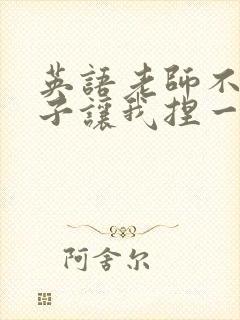 英語老師不
子讓我捏一
阿舍尔